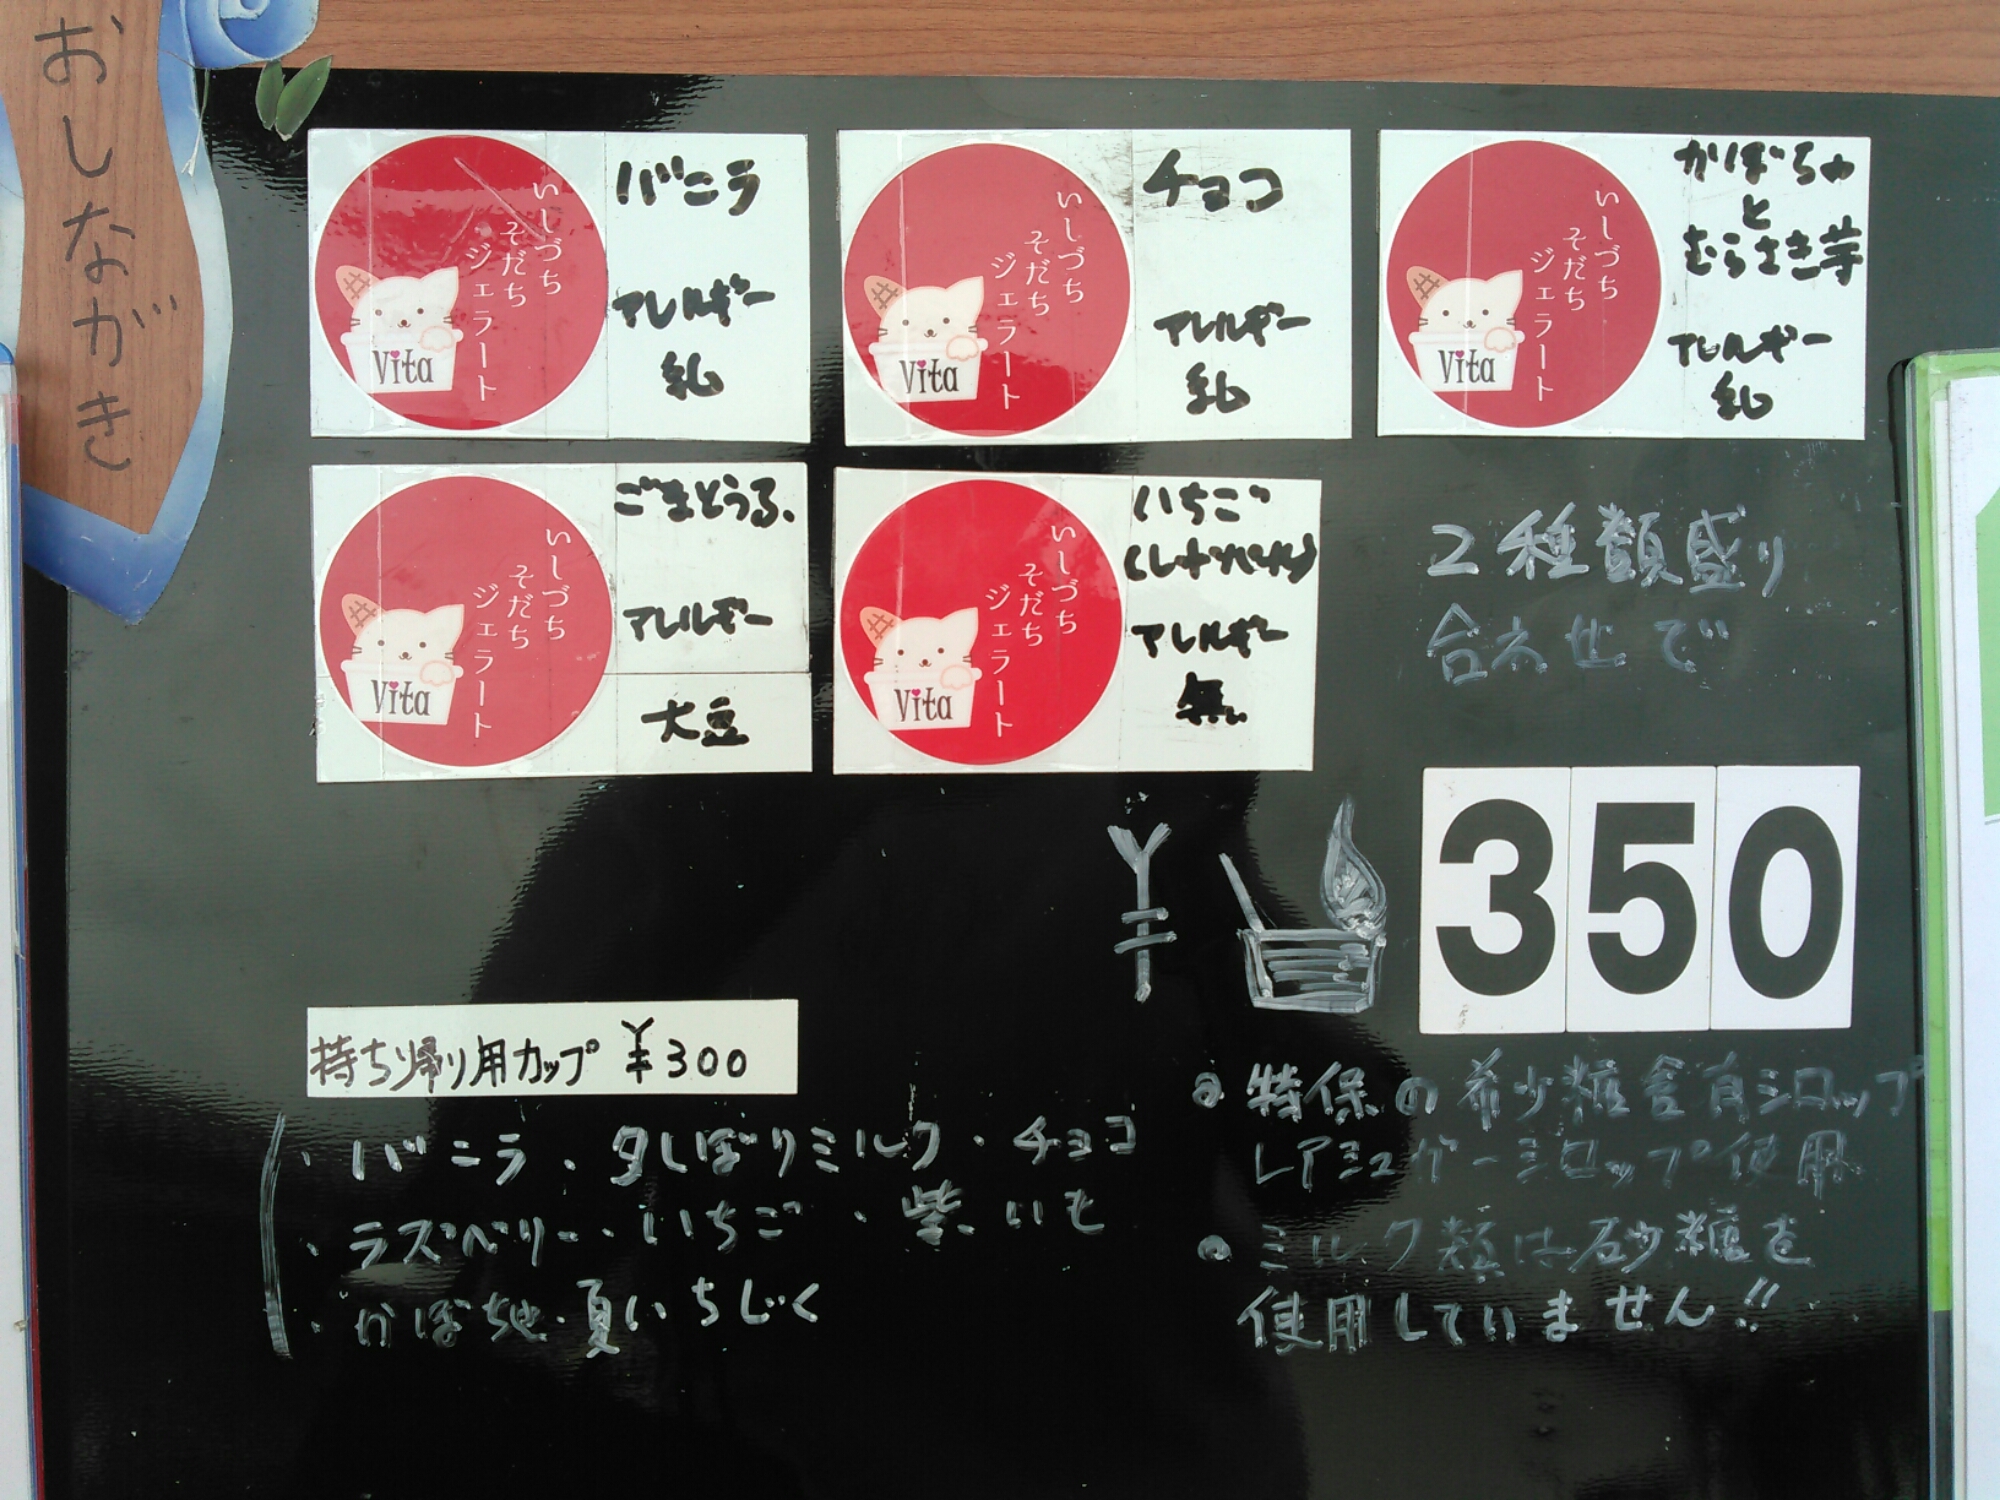 おしながき
いしづち
そだち
ジェラート
Vita
バニラ
アレルギー
乳
いしづち
そだち
ジェラート
Vita
チョコ
アレルギー
乳
いしづち
そだち
ジェラート
Vita
かぼちゃ
と
むらさき芋
アレルギー
乳
いしづち
そだち
ジェラート
Vita
ごまとうふ
アレルギー
大豆
いしづち
そだち
ジェラート
Vita
いちご
(しゃーべっと)
アレルギー
無し
2種類盛り
合わせで
¥ 350
持ち帰り用カップ ¥300
・バニラ・夕しぼりミルク・チョコ
・ラズベリー・いちご・紫いも
・かぼちゃ・夏いちじく
特保の希少糖含有シロップ
レアシュガーシロップ使用
ミルク類は砂糖を
使用していません!!